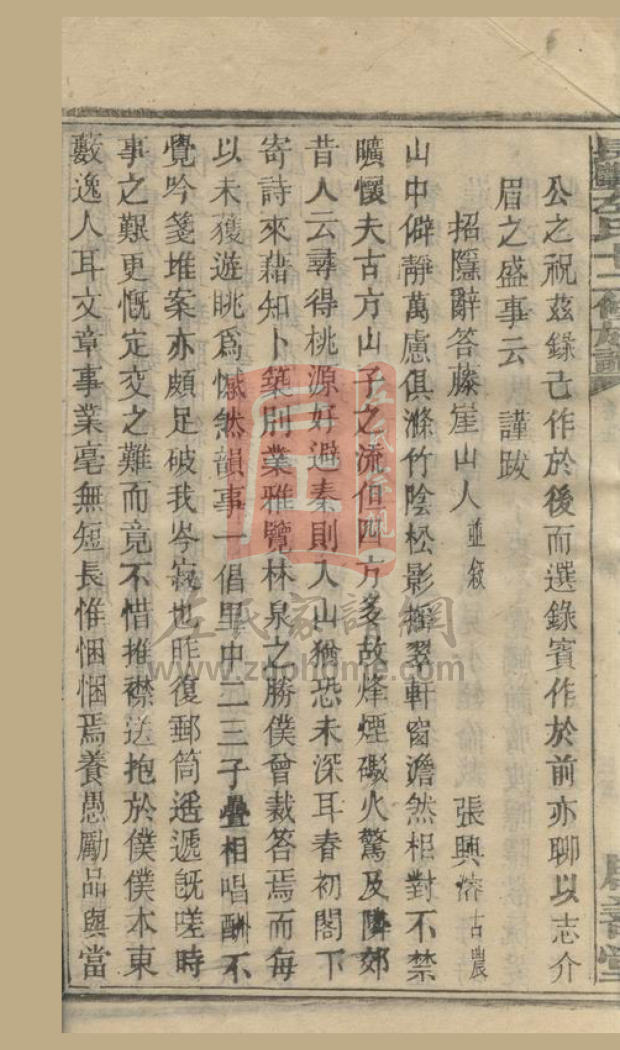 長沙左氏十二修族譜
廣善堂
公之祝茲錄己作於後而選錄賓作於前亦聊以志介
眉之盛事云　謹跋
招隱辭答藤崖山人並敘　張興熔古農
山中僻靜萬慮俱滌竹陰松影搖翠軒窗澹然相對不禁
曠懷夫古方山子之流但四方多故烽煙礮火驚及隣郊
昔人云尋得桃源好避秦則入山猶恐未深耳春初閣下
寄詩來藉知卜築別業雅覽林泉之勝僕曾裁答焉而每
以未獲遊眺爲憾然韻事一倡里中二三子疊相唱酬不
覺吟箋堆案亦頗足破我岑寂也昨復郵筒遙遞旣嗟時
事之艱更慨定交之難而竟不惜推襟送抱於僕僕本東
藪逸人耳文章事業毫無短長惟悃悃焉養愚勵品與當
左氏家譜網
www.zuohome.com